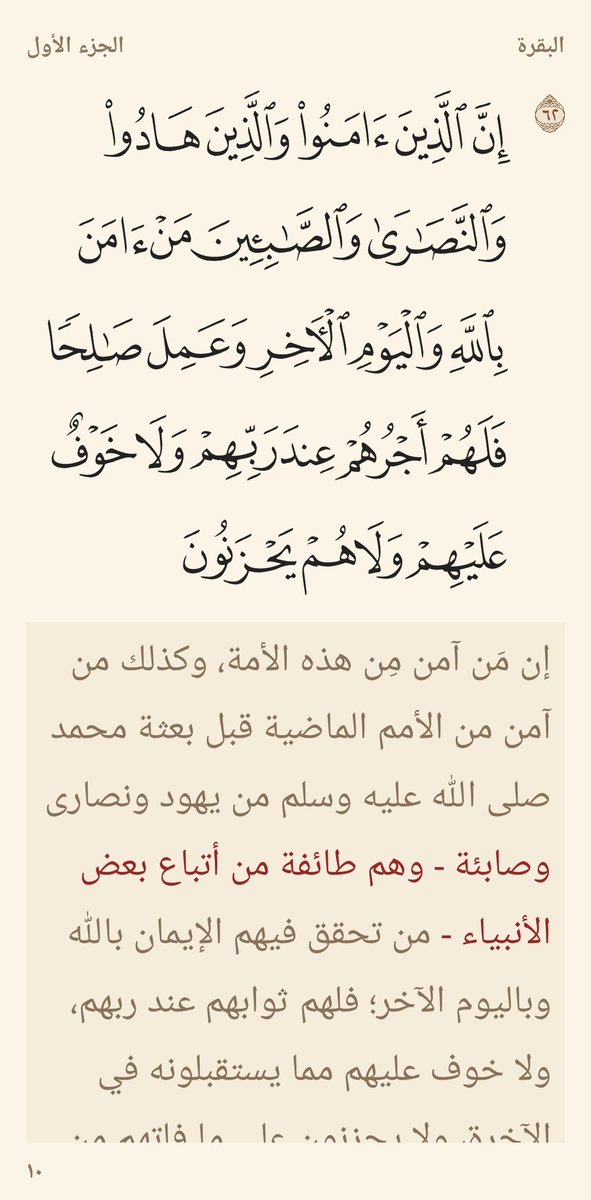 البقرة
الجزء الأول
٦٢
إِنَّ ٱلَّذِينَ ءَامَنُوا۟ وَٱلَّذِينَ هَادُوا۟
وَٱلنَّصَـٰرَىٰ وَٱلصَّـٰبِـِٔينَ مَنْ ءَامَنَ
بِٱللَّهِ وَٱلْيَوْمِ ٱلْـَٔاخِرِ وَعَمِلَ صَـٰلِحًا
فَلَهُمْ أَجْرُهُمْ عِندَ رَبِّهِمْ وَلَا خَوْفٌ
عَلَيْهِمْ وَلَا هُمْ يَحْزَنُونَ
إن مَن آمن مِن هذه الأمة، وكذلك من
آمن من الأمم الماضية قبل بعثة محمد
صلى الله عليه وسلم من يهود ونصارى
وصابئة - وهم طائفة من أتباع بعض
الأنبياء - من تحقق فيهم الإيمان بالله
وباليوم الآخر؛ فلهم ثوابهم عند ربهم،
ولا خوف عليهم مما يستقبلونه في
الآخرة، ولا يحزنون على ما فاتهم من
١٠